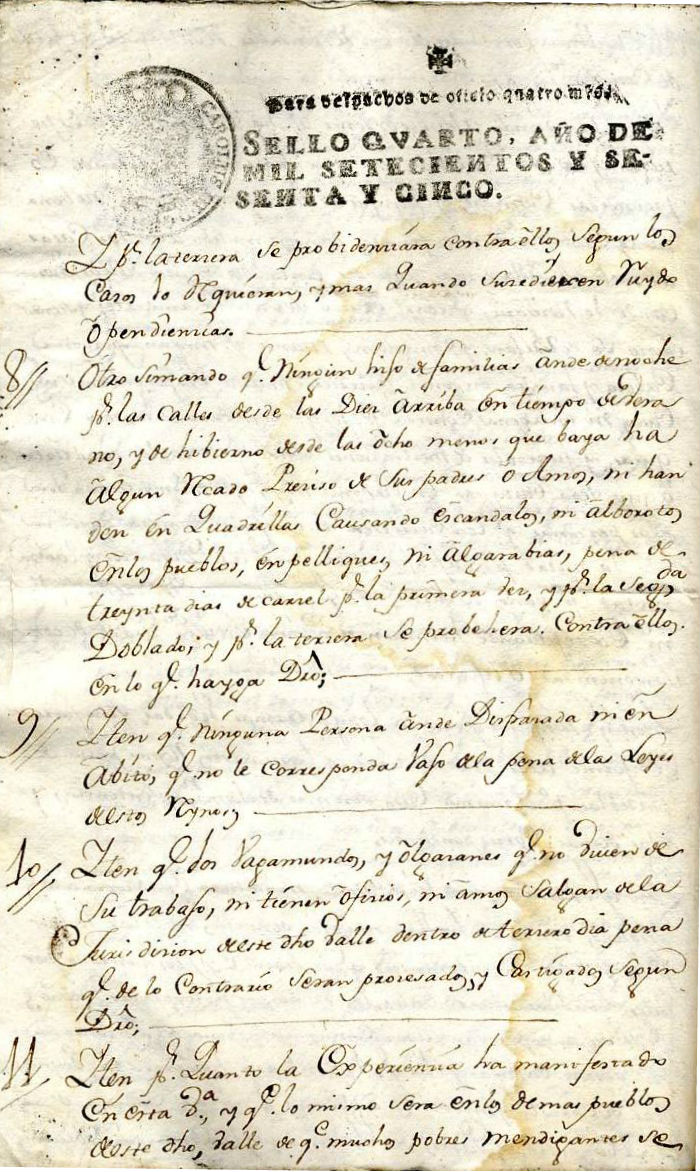 Para despachos de oficio quatro mrs.
SELLO QVARTO, AÑO DE
MIL SETECIENTOS Y SE-
SENTA Y CINCO.
CAROLUS
Y pr. la tersera se probidenciara contra ellos segun los
Casos lo Rquieran, y mas Quando suzedieren Ruydo
o pendienzias.
8//
Otro si mando q.e Ningun hijo de familias ande de noche
pr. las calles desde las Diez Arriba en tiempo de vera
no, y de hibierno desde las ocho menos que baya ha
Algun Rcado Preziso de sus padres o Amos, ni han
den en Quadrillas Causando escandalos, ni alborotos
en los pueblos, en pelliques, ni Algarabias, pena de
treynta dias de carzel pr. la primera vez, y pr. la segda
Doblado; y pr. la terzera se probehera. Contra ellos.
en lo q.e haya Dro;
9//
Iten q.e ninguna Persona ande Disfrazada ni en
Abito, q.e no le corresponda bajo de la pena de las Leyes
de estos Rynos,
10//
Iten q.e los Vagamundos, y olgazanes q.e no viven de
su trabajo, ni tienen ofizios, ni amos salgan de la
Jurisdizion de este dho valle dentro de terzero dia pena
q.e de lo Contrario seran prozesados, y Castigados segun
Dro;
11//
Iten pr. Quanto la Experienzia ha manifestado
en esta va., y q.e lo mismo sera en los demas pueblos
de este dho, valle de q.e muchos pobres mendigantes se